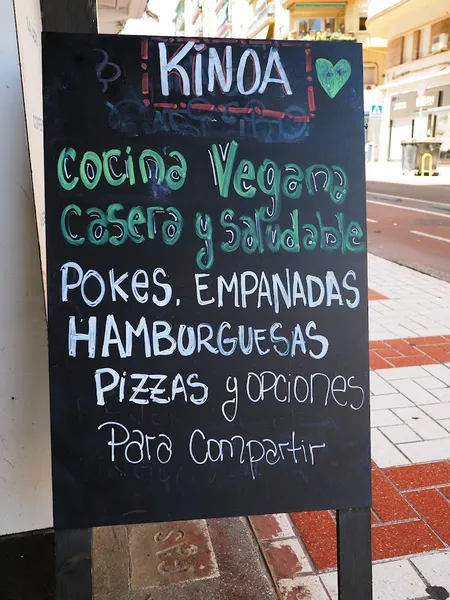 KINOA
Cocina Vegana
Casera y saludable
POKES, EMPANADAS
HAMBURGUESAS
PIZZAS y OPCIONES
Para Compartir
GAS